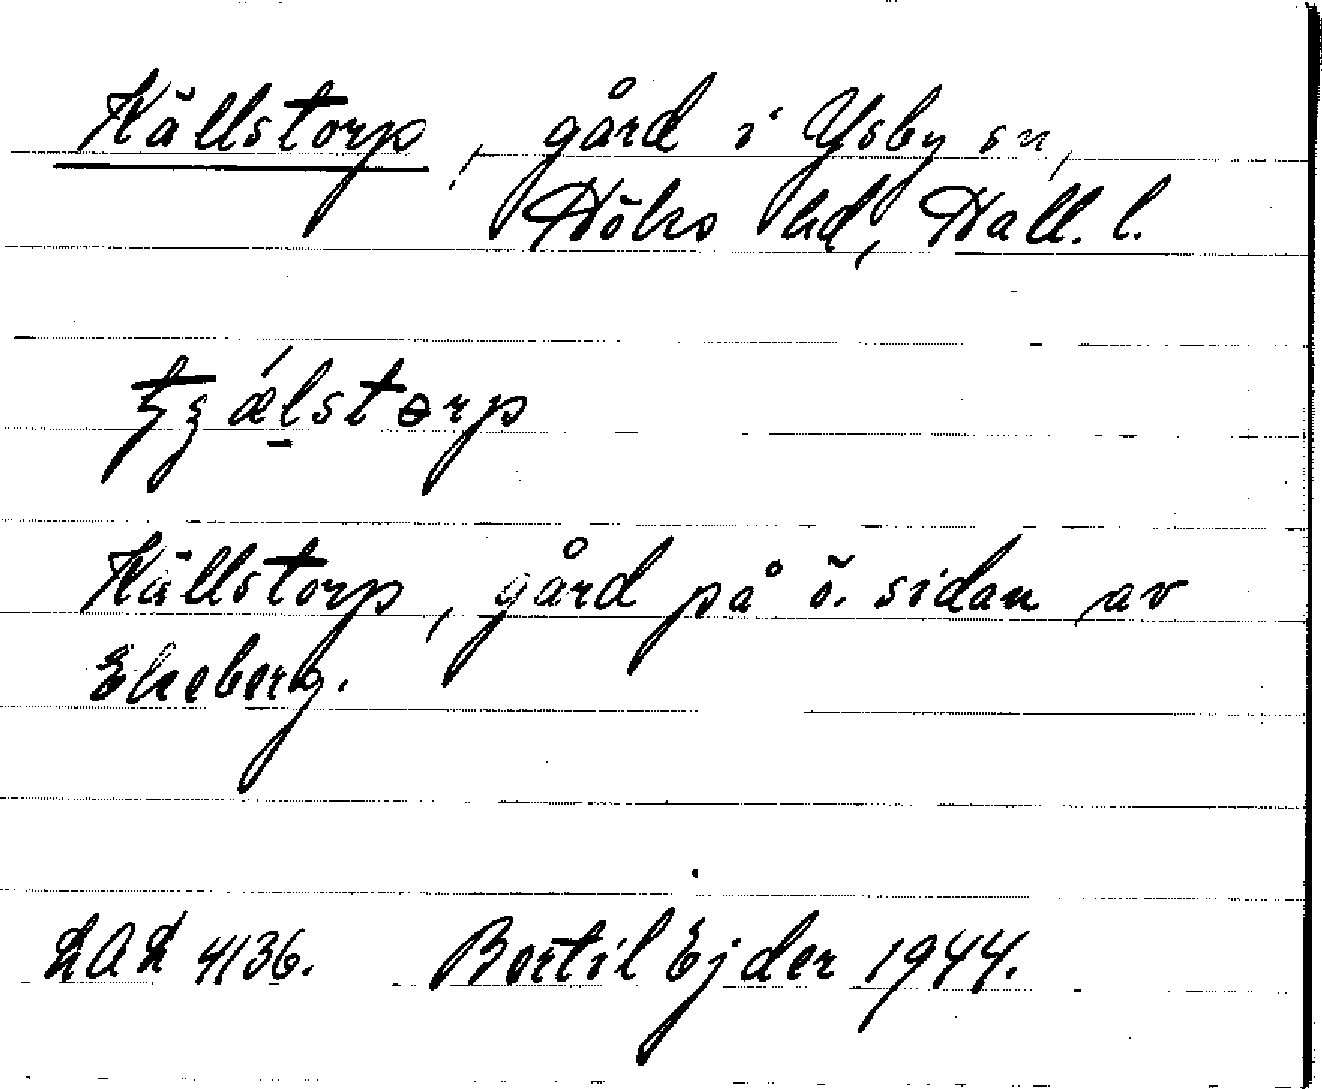 Källstorp, gård i Ysby sn,
Höks hd, Hall. l.
tʒǽlstɵrp
Källstorp, gård på ö. sidan av
Ekeberg.
LAL 4136. Bertil Ejder 1944.